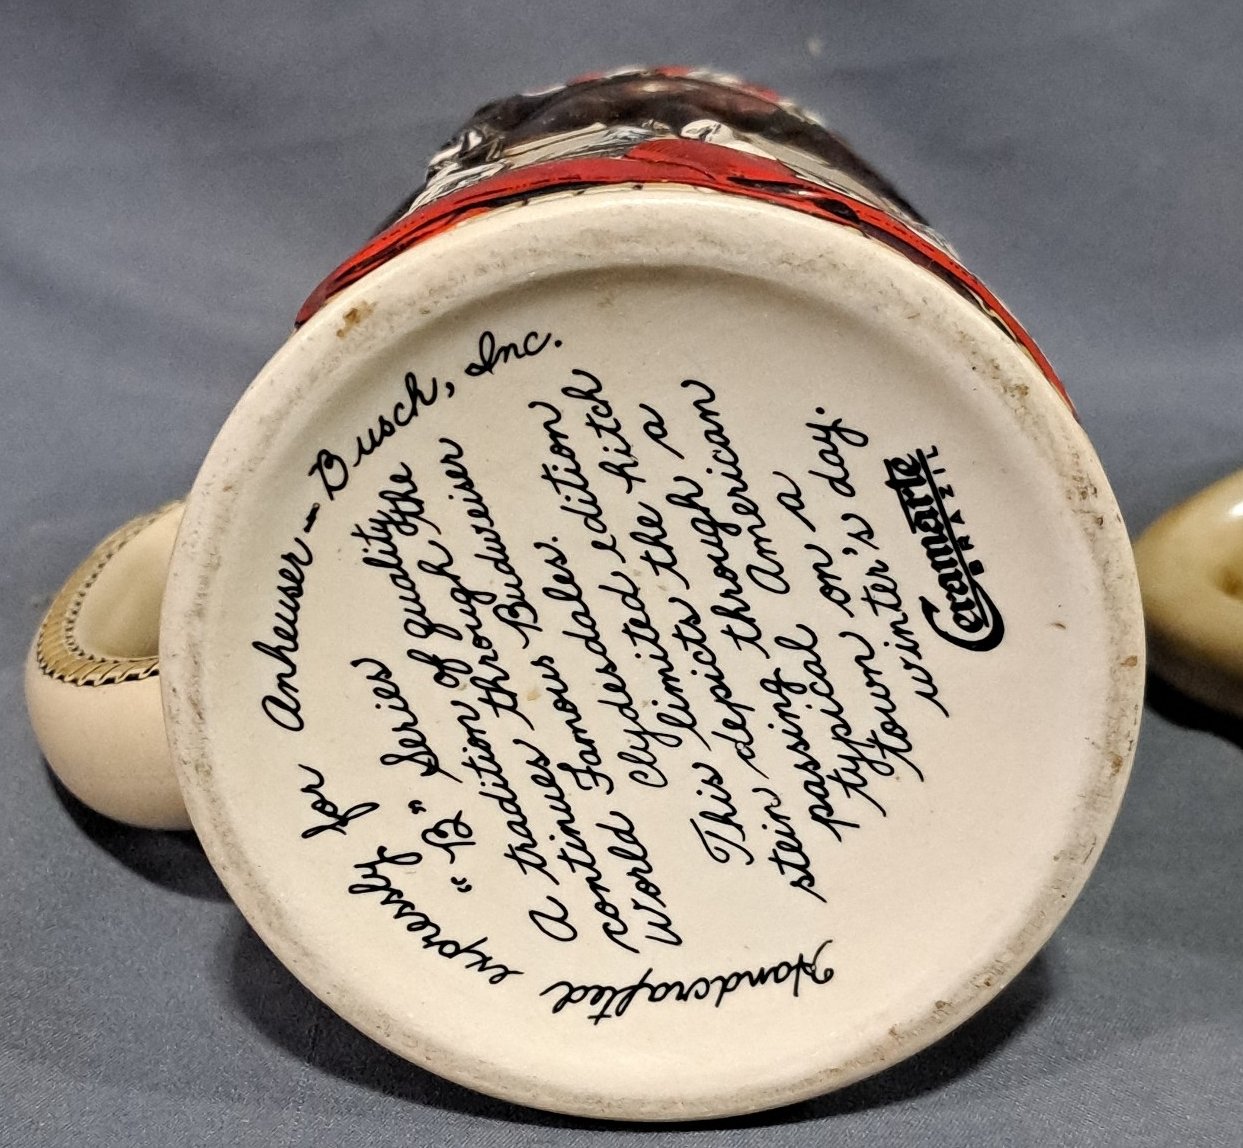 Handcrafted expressly for Anheuser-Busch, Inc.
"B" Series
A tradition of quality
continues through the
World Famous Budweiser
Clydesdales.
This limited edition
stein depicts the hitch
passing through a
typical American
town on a
winter's day.
Ceramarte
BRAZIL